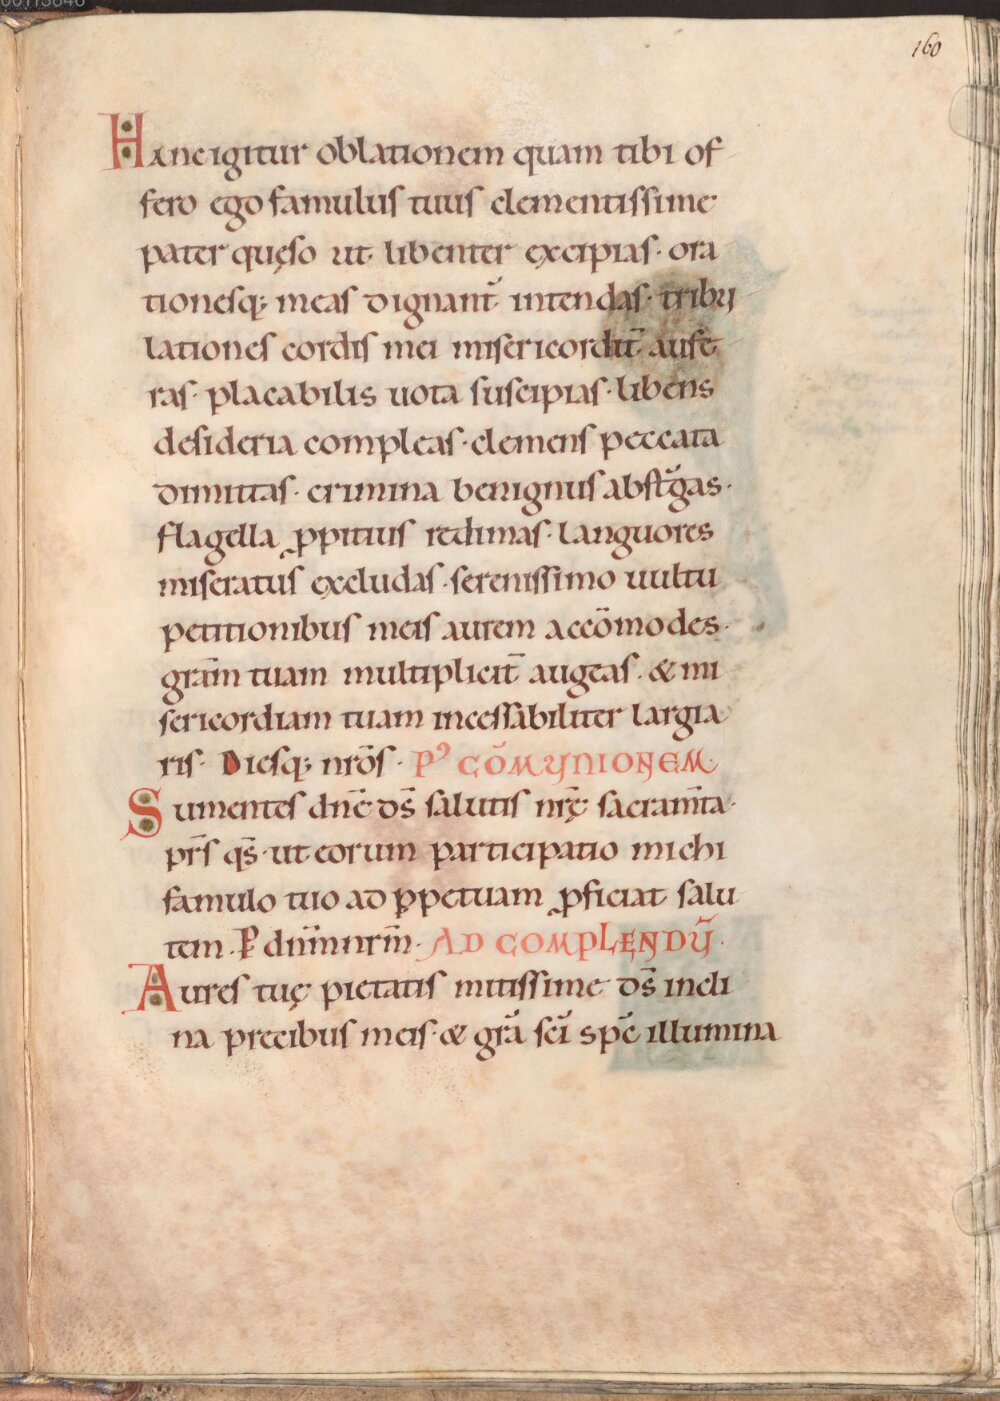 160
Hanc igitur oblationem quam tibi of
fero ego famulus tuus clementissime
pater quęso ut libenter excipias · ora
tionesq; meas dignant̄ intendas · tribu
lationes cordis mei misericordit̄ aufe
ras · placabilis uota suscipias · libens
desideria compleas · clemens peccata
dimittas · crimina benignus abst̄gas ·
flagella ꝓpitius redimas · languores
miseratus excludas · serenissimo uultu
petitionibus meis aurem accōmodes ·
grām tuam multiplicit̄ augeas · & mi
sericordiam tuam incessabiliter largia
ris · Diesq; nrōs · Pꝰ CŌMUNIONEM
Sumentes dn̄e ds̄ salutis nr̄ę sacram̄ta ·
pr̄s qs̄ · ut eorum participatio michi
famulo tuo ad ꝑpetuam ꝓficiat salu
tem · P̄ dn̄m nrm̄ · AD COMPLENDŪ ·
Aures tuę pietatis mitissime ds̄ incli
na precibus meis · & grā sc̄i sp̄c illumina